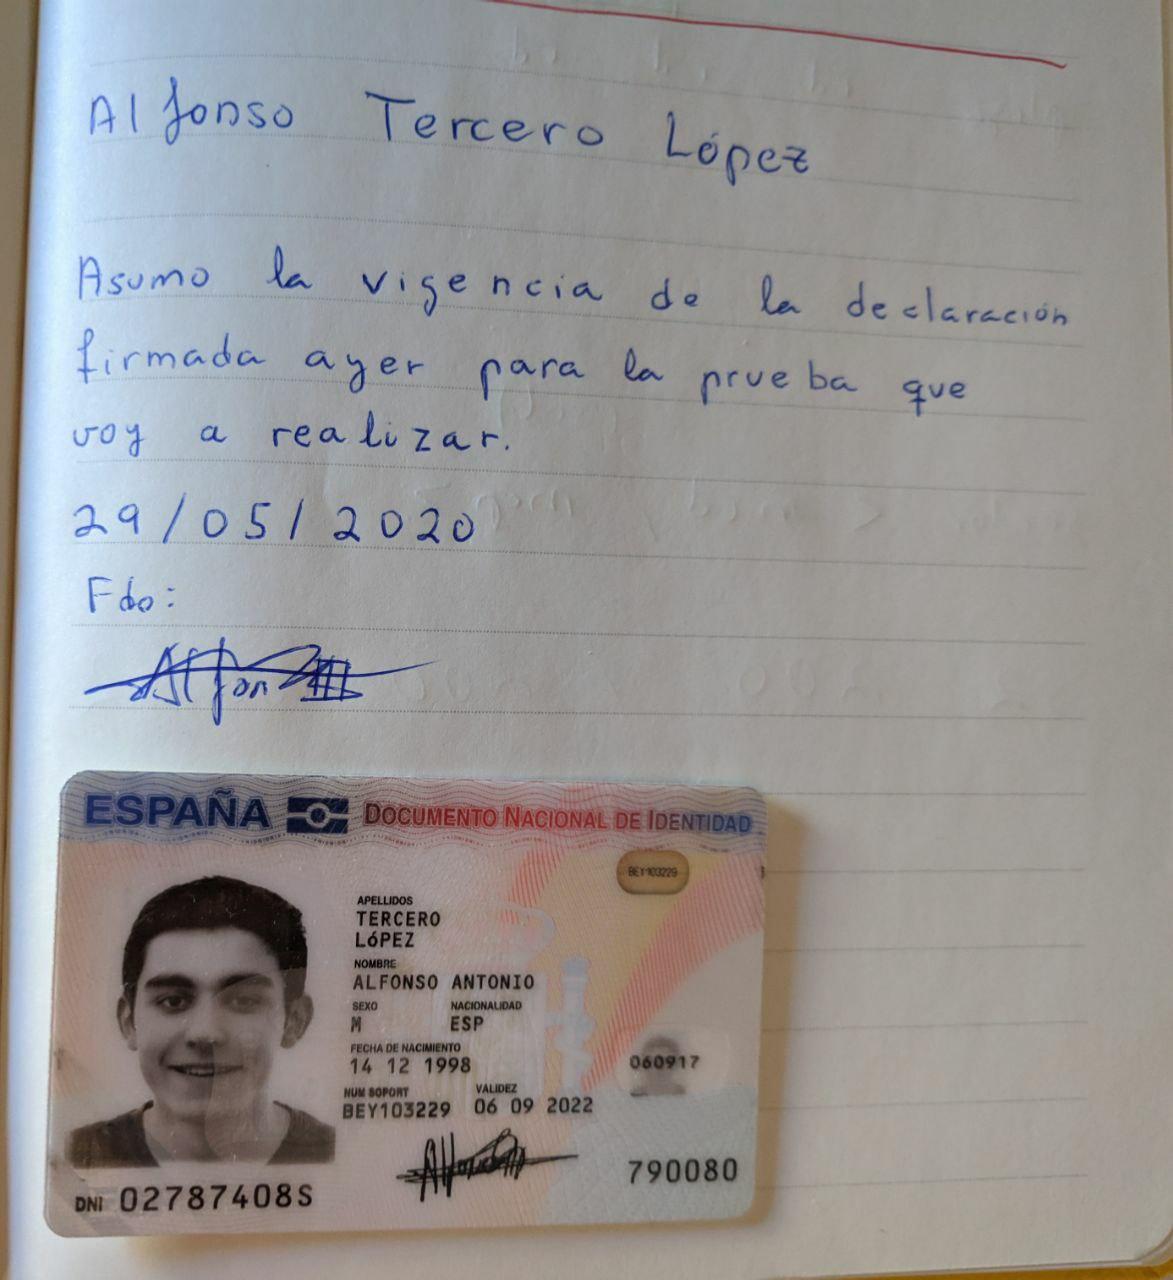 Alfonso Tercero López
Asumo la vigencia de la declaración
firmada ayer para la prueba que
voy a realizar.
29/05/2020
Fdo:
ESPAÑA DOCUMENTO NACIONAL DE IDENTIDAD
BEY103229
APELLIDOS
TERCERO
LÓPEZ
NOMBRE
ALFONSO ANTONIO
SEXO NACIONALIDAD
M ESP
FECHA DE NACIMIENTO
14 12 1998
060917
NUM SOPORT VALIDEZ
BEY103229 06 09 2022
790080
DNI 02787408S